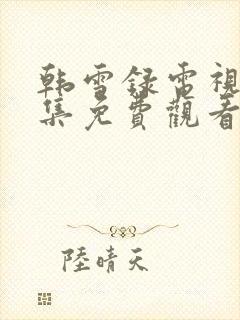 韩雪録電視
集免費觀看
陸晴天